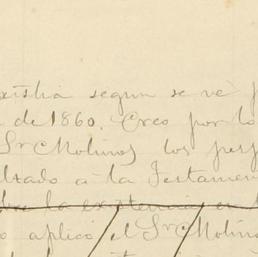 existia segun se vé
de 1860. Creo por lo
Sr Molinos los perj
ltado a la Testamen
la existencia en
aplicó el Sr Molin